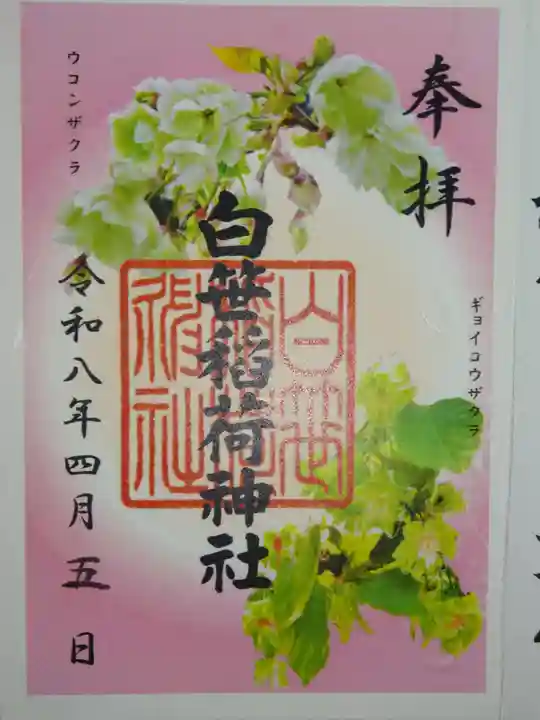 奉拝
ギョイコウザクラ
白笹稲荷神社
白笹
稲荷
神社
ウコンザクラ
令和八年四月五日